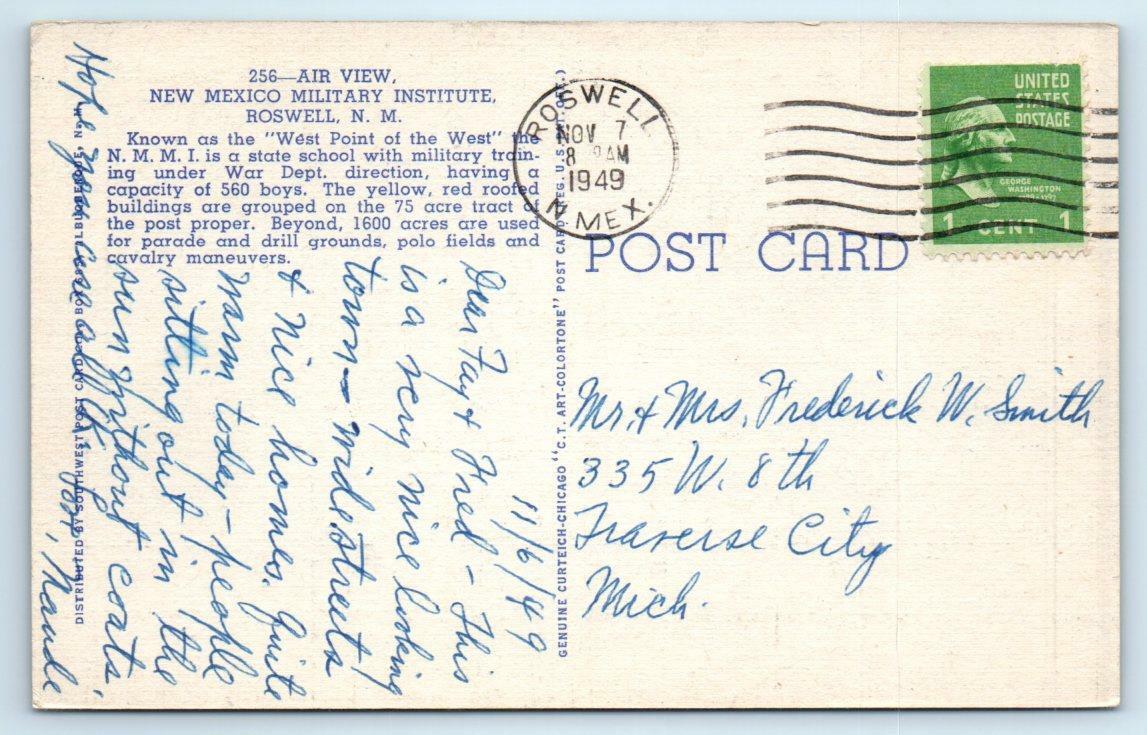 256—AIR VIEW,
NEW MEXICO MILITARY INSTITUTE,
ROSWELL, N. M.
Known as the "West Point of the West" the
N. M. M. I. is a state school with military train-
ing under War Dept. direction, having a
capacity of 560 boys. The yellow, red roofed
buildings are grouped on the 75 acre tract of
the post proper. Beyond, 1600 acres are used
for parade and drill grounds, polo fields and
cavalry maneuvers.
11/6/49
Dear Fay & Fred – This
is a very nice looking
town – Wide streets
& Nice homes. Quite
warm today – people
sitting out in the
sun without coats.
Hope you are all O.K.
Maude
DISTRIBUTED BY SOUTHWEST POST CARD CO., BOX 685, ALBUQUERQUE, N. M.
GENUINE CURTEICH-CHICAGO "C.T. ART-COLORTONE" POST CARD (REG. U.S. PAT. OFF.)
ROSWELL
NOV 7
8 AM
1949
N. MEX.
UNITED
STATES
POSTAGE
GEORGE
WASHINGTON
1 CENT 1
POST CARD
Mr. & Mrs. Frederick W. Smith
335 W. 8th
Traverse City
Mich.